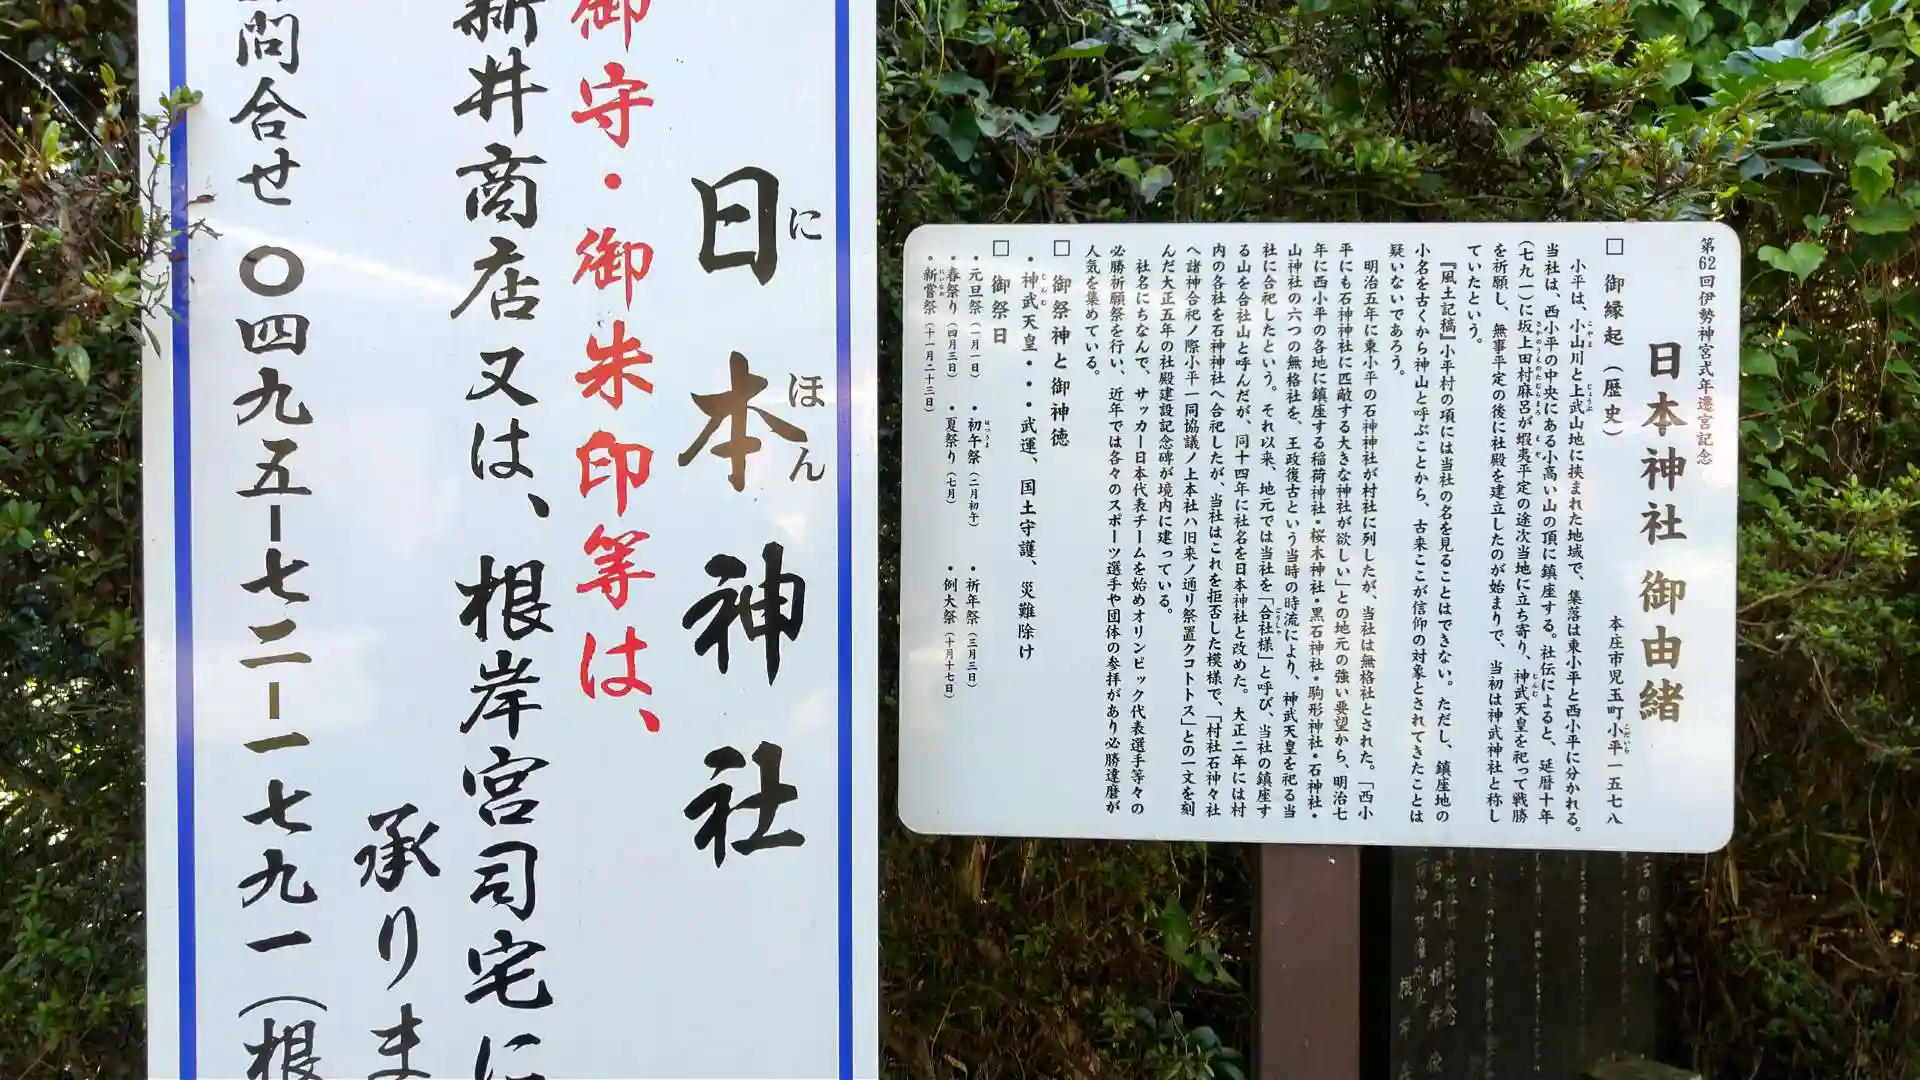 日本神社
にほん
御守・御朱印等は、
新井商店又は、根岸宮司宅に
承りま
問合せ 〇四九五ー七二ー一七九一（根
第62回伊勢神宮式年遷宮記念
日本神社 御由緒
本庄市児玉町小平一五七八
こだいら
□ 御縁起（歴史）
小平は、小山川と上武山地に挟まれた地域で、集落は東小平と西小平に分かれる。
こやま じょうぶ
当社は、西小平の中央にある小高い山の頂に鎮座する。社伝によると、延暦十年
（七九一）に坂上田村麻呂が蝦夷平定の途次当地に立ち寄り、神武天皇を祀って戦勝
さかのうえのたむらまろ えぞ じんむ
を祈願し、無事平定の後に社殿を建立したのが始まりで、当初は神武神社と称し
ていたという。
『風土記稿』小平村の項には当社の名を見ることはできない。ただし、鎮座地の
小名を古くから神山と呼ぶことから、古来ここが信仰の対象とされてきたことは
疑いないであろう。
明治五年に東小平の石神神社が村社に列したが、当社は無格社とされた。「西小
平にも石神神社に匹敵する大きな神社が欲しい」との地元の強い要望から、明治七
年に西小平の各地に鎮座する稲荷神社・桜本神社・黒石神社・駒形神社・石神社・
山神社の六つの無格社を、王政復古という当時の時流により、神武天皇を祀る当
社に合祀したという。それ以来、地元では当社を「合社様」と呼び、当社の鎮座す
ごうしゃ
る山を合社山と呼んだが、同十四年に社名を日本神社と改めた。大正二年には村
内の各社を石神神社へ合祀したが、当社はこれを拒否した模様で、「村社石神々社
へ諸神合祀ノ際小平一同協議ノ上本社ハ旧来ノ通リ祭置クコトトス」との一文を刻
んだ大正五年の社殿建設記念碑が境内に建っている。
社名にちなんで、サッカー日本代表チームを始めオリンピック代表選手等々の
必勝祈願祭を行い、近年では各々のスポーツ選手や団体の参拝があり必勝達磨が
人気を集めている。
□ 御祭神と御神徳
・神武天皇・・・武運、国土守護、災難除け
じんむ
□ 御祭日
・元旦祭（一月一日） ・初午祭（二月初午） ・祈年祭（三月三日）
はつうま
・春祭り（四月三日） ・夏祭り（七月） ・例大祭（十月十七日）
・新嘗祭（十一月二十三日）
にいなめ